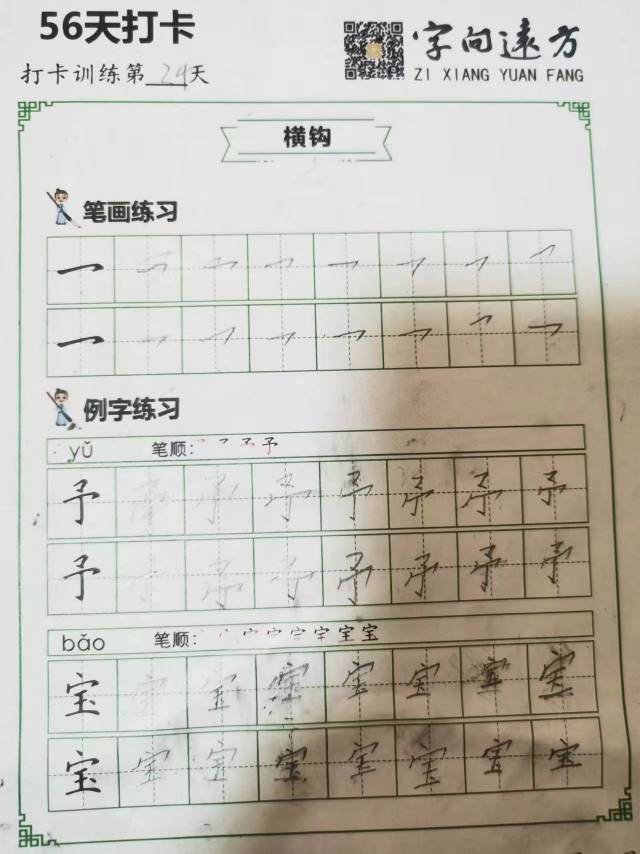 56天打卡
字向远方
ZI XIANG YUAN FANG
打卡训练第24天
横钩
笔画练习
例字练习
yǔ 笔顺:
予 予 予 予 予 予 予 予
予 予 予 予 予 予 予 予
bǎo 笔顺:
宝 宝 宝 宝 宝 宝 宝 宝
宝 宝 宝 宝 宝 宝 宝 宝